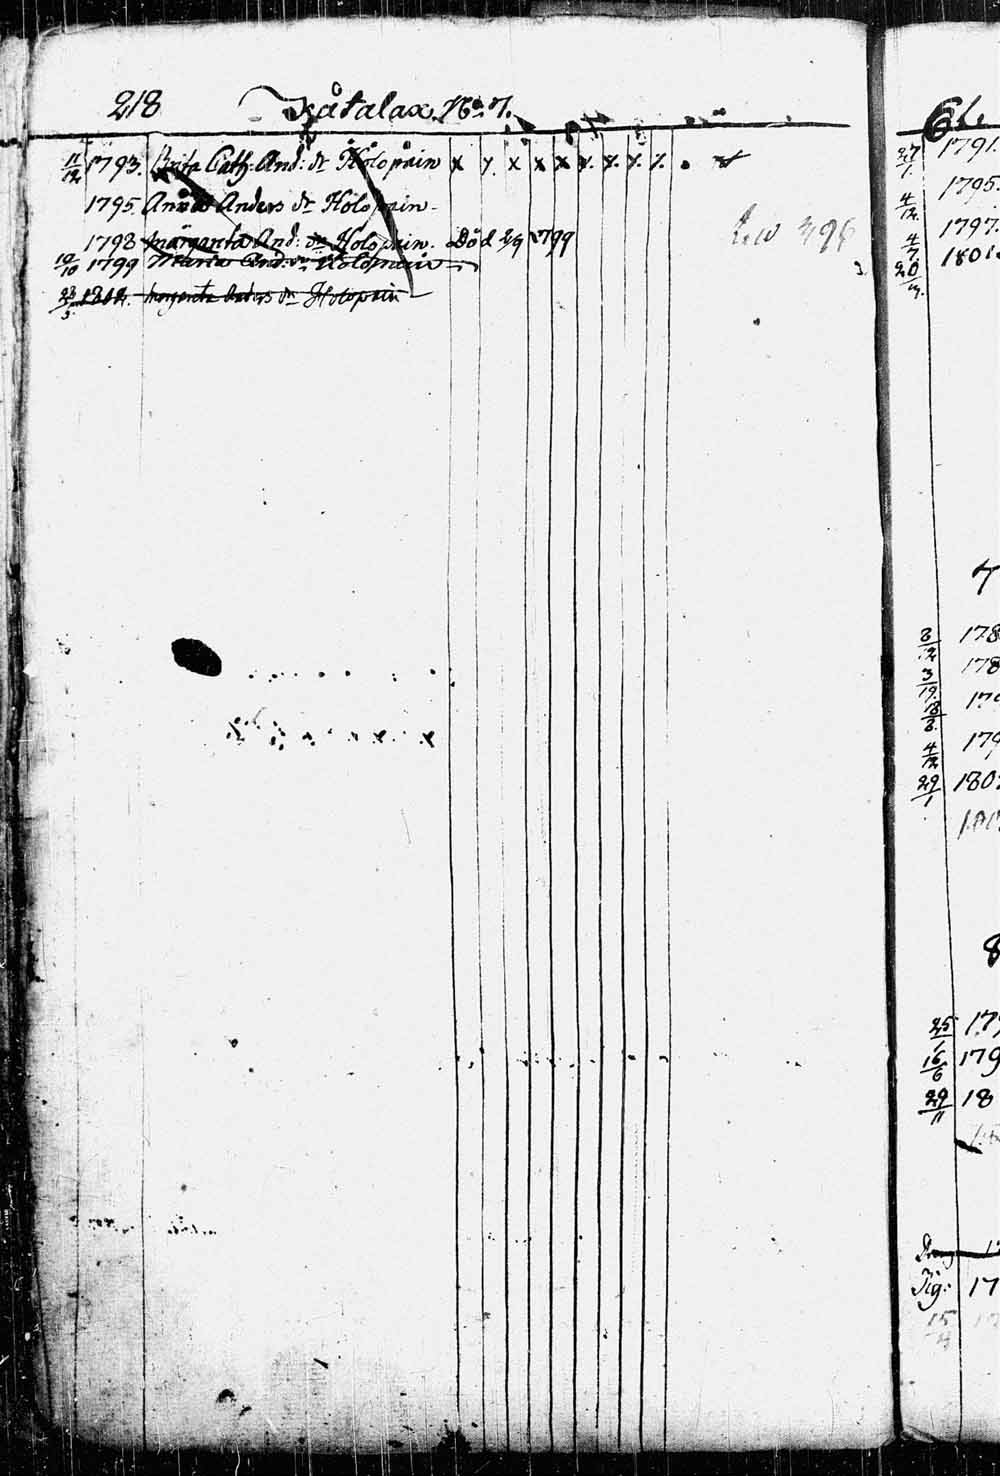 218 Kåtalax. No. 7.
11/12 1793. Brita Cath. And: dr Holopain x y. x x x x. x. x. x.
1795. Anders dr Holopain
1798 Margareta And: dr Holopain. Död 2/9 1799
10/10 1799 Maria And: dr Holopain
Margareta Anders dr Holopain
6
27/1. 1791.
4/12. 1795.
4/7. 1797.
20 1801.
7
8/12 178
3/19. 178
18/8. 179
4/12 179
29/1 180
8
25/1 179
16/6 179
29/11 18
Dreng
Pig: 17